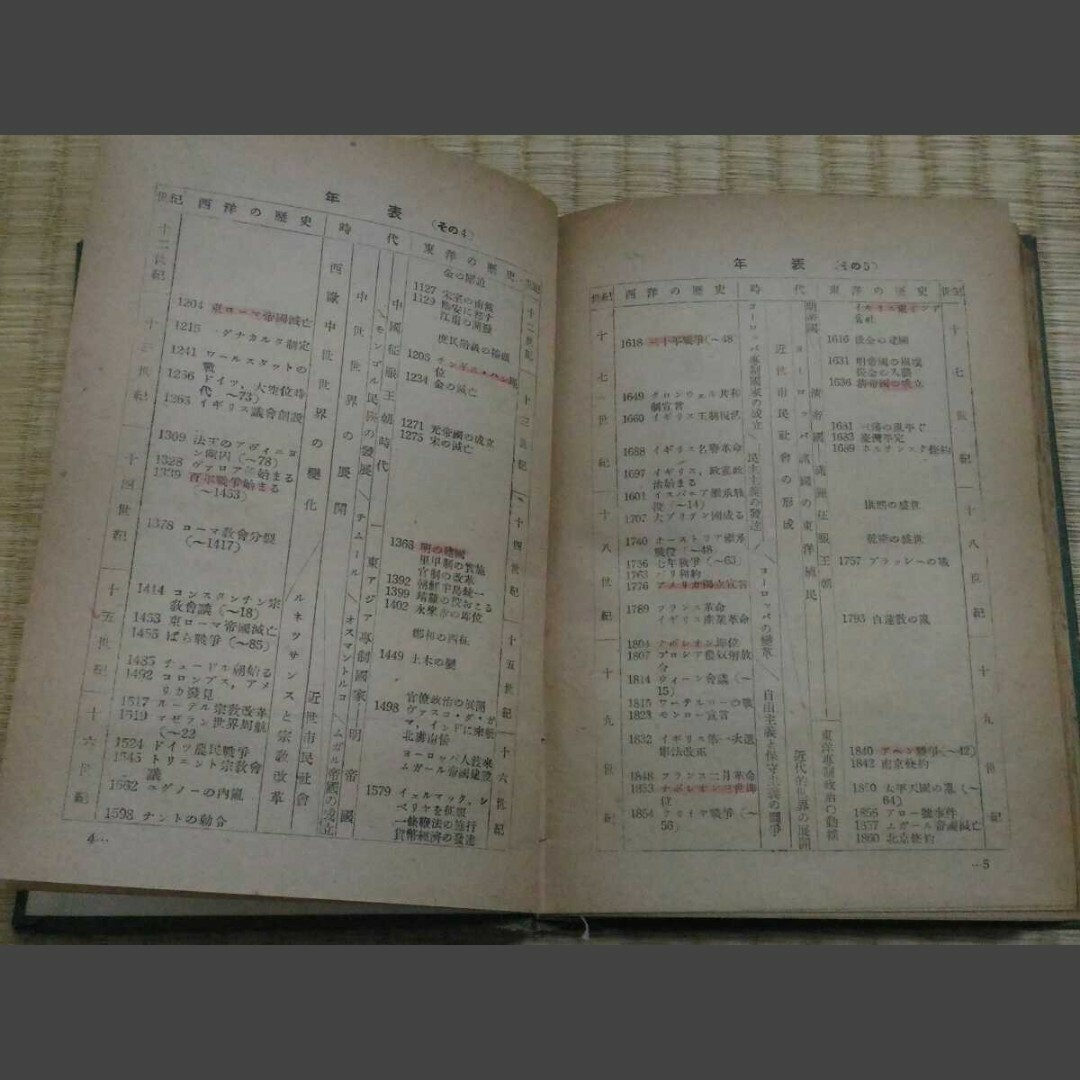 年表(その4)
世紀 西洋の歴史 時代 東洋の歴史
十二世紀
十三世紀
十四世紀
十五世紀
十六世紀
1204 東ローマ帝國滅亡
1215 マグナカルタ制定
1241 ワールスタットの
戰
1256 ドイツ、大空位時
代(~73)
1265 イギリス議會創設
1309 法王のアヴィニヨ
ン幽囚(~78)
1328 ヴァロア 始まる
1339 百年戰爭始まる
(~1453)
1378 ローマ敎會分裂
(~1417)
1414 コンスタンテン宗
敎會議(~18)
1453 東ローマ帝國滅亡
1455 ばら戰爭(~85)
1485 チュードル朝始る
1492 コロンブス、アメ
リカ發見
1517 ルーテル宗敎改革
1519 マゼラン世界周航
(~22
1524 ドイツ農民戰爭
1545 トリエント宗敎會
議
1562 ユグノーの內亂
1598 ナントの勅令
西歐中世世界の變化
ルネッサンスと宗敎改革
中世世界の展開
近世市民社會
モンゴル民族の發展/チムール/オスマントルコ/ムガル帝國の成立
中國征服王朝時代
東アジア專制國家―明帝國
金の
1127 宋室の南渡
1129 臨安に都す
江南の開發
庶民階級の擡頭
1206 チンギス・ハン卽
位
1234 金の滅亡
1271 元帝國の成立
1275 宋の滅亡
1368 明の建國
里甲制の實施
官制の改革
1392 朝鮮半島統一
1399 靖難の役おこる
1402 永樂帝の卽位
鄭和の西征
1449 土木の變
官僚政治の展開
1498 ヴァスコ・ダ・ガ
マ、インドに來航
北虜南倭
ヨーロッパ人渡來
ムガール帝國建設
1579 イェルマック、シ
ベリヤを征服
一條鞭法の施行
貨幣經濟の發達
十二世紀
十三世紀
十四世紀
十五世紀
十六世紀
4…
年表(その5)
世紀 西洋の歴史 時代 東洋の歴史 世紀
十七世紀
十八世紀
十九世紀
1618 三十年戰爭(~48
1649 クロンウェル共和
制宣言
1660 イギリス王制復活
1688 イギリス名譽革命
1697 イギリス、政黨政
治始まる
1601 イスパニア繼承戰
役(~14)
1707 大ブリテン國成る
1740 オーストリア繼承
戰役(~48
1756 七年戰爭(~63)
1763 パリ和約
1776 アメリカ獨立宣言
1789 フランス革命
イギリス產業革命
1804 ナポレオン卽位
1807 プロシア農奴解放
令
1814 ウィーン會議(~
15)
1815 ワーテルローの戰
1823 モンロー宣言
1832 イギリス第一次選
擧法改正
1848 フランス二月革命
1853 ナポレオン三世卽
位
1854 クリミヤ戰爭(~
56)
ヨーロッパ專制國家の成立/民主主義の發達/ヨーロッパの變革/自由主義と保守主義の鬪爭
近世市民社會の形成
近代的世界の展開
ヨーロッパ諸國の東洋植民
明帝國
淸帝國―滿洲征服王朝
東洋專制政治の動搖
イギリス東インド
會社
1616 後金の建國
1631 明帝國の崩壞
後金の入關
1636 淸帝國の成立
1681 三藩の亂平ぐ
1683 臺灣平定
1689 ネルチンスク條約
康熙の盛世
乾隆の盛世
1757 プラッシーの戰
1793 白蓮敎の亂
1840 アヘン戰爭(~42)
1842 南京條約
1850 太平天國の亂(~
64)
1856 アロー號事件
1857 ムガール帝國滅亡
1860 北京條約
十七世紀
十八世紀
十九世紀
…5